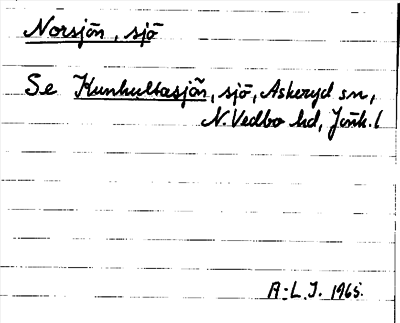 Norsjön, sjö
Se Kunhultasjön, sjö, Askeryd sn,
N. Vedbo hd, Jönk. l
A-L. J. 1965.